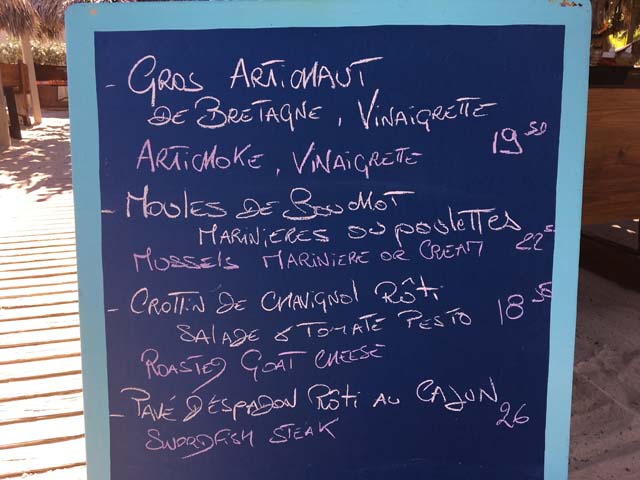 - GROS ARTICHAUT
DE BRETAGNE, VINAIGRETTE
ARTICHOKE, VINAIGRETTE 19 50
- MOULES DE BOUCHOT
MARINIERES OU POULETTES
MUSSELS MARINIERE OR CREAM 22 5
- CROTTIN DE CHAVIGNOL RÔTI
SALADE & TOMATE PESTO 18 50
ROASTED GOAT CHEESE
- PAVÉ D'ESPADON RÔTI AU CAJUN 26
SWORDFISH STEAK